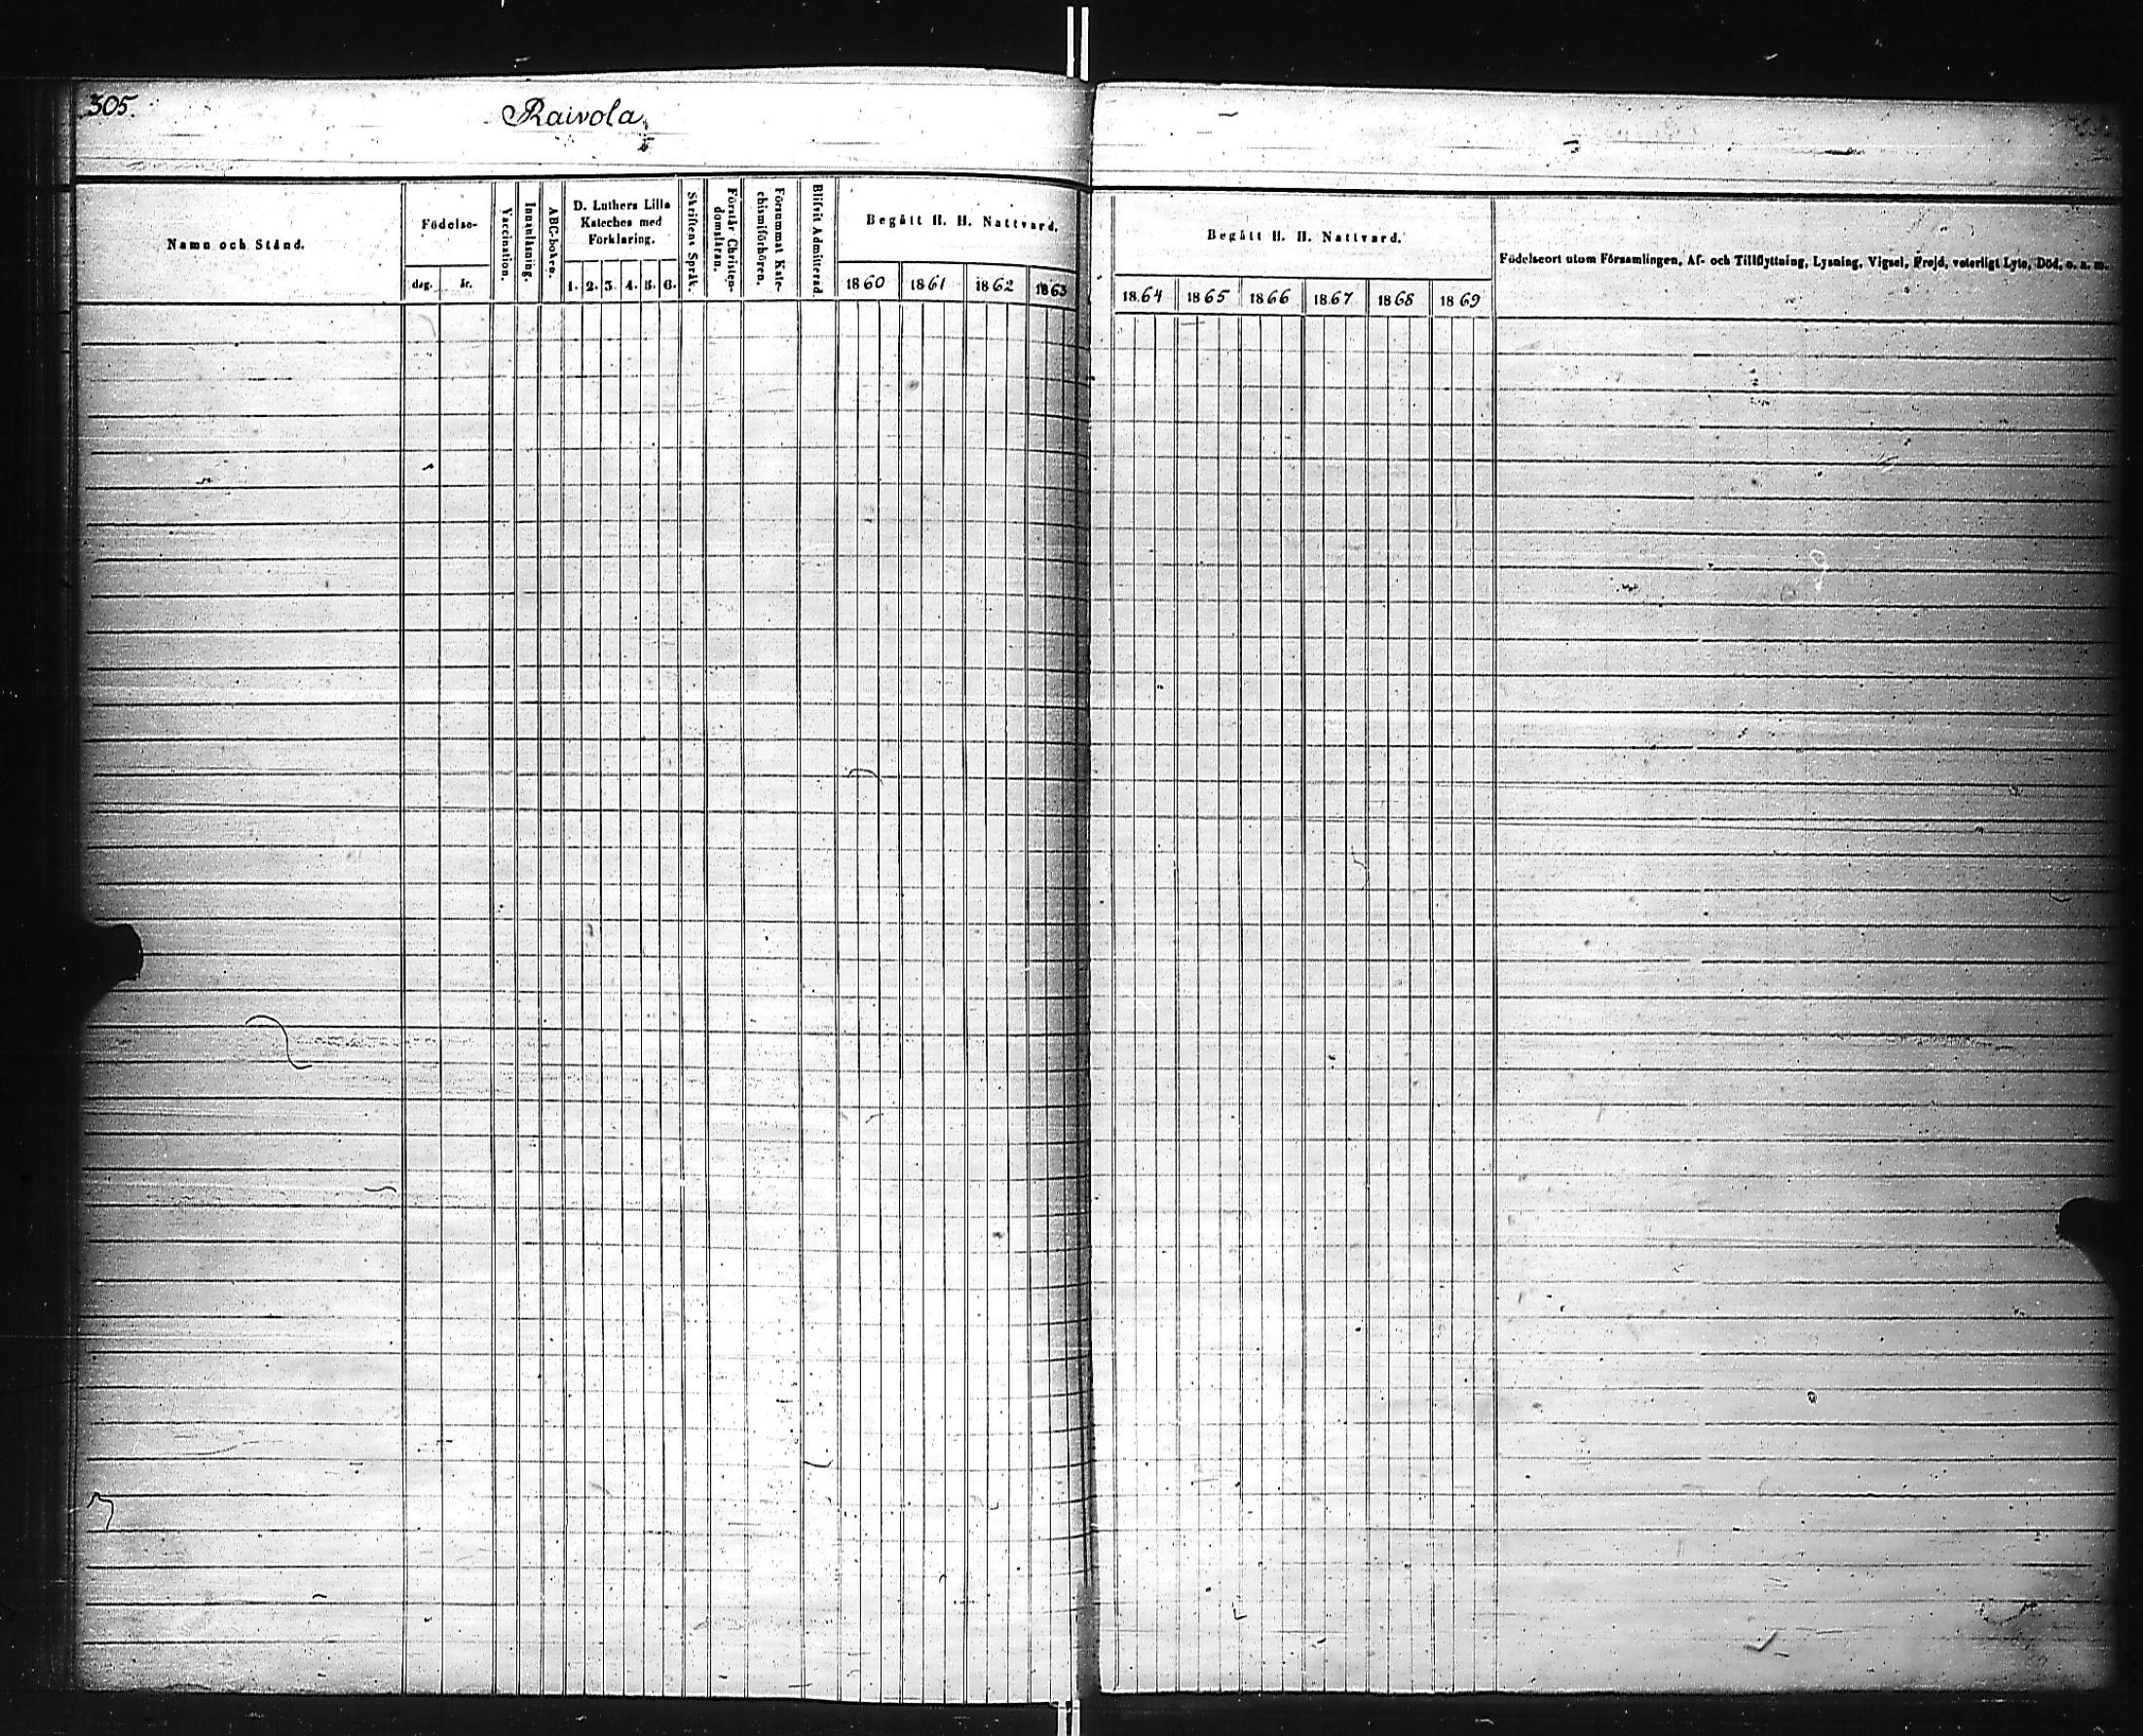 305.
Raivola
Namn och Stånd.
Födelse-
dag.
år.
Vaccination.
Innanläsning.
ABC-boken.
D. Luthers Lilla
Kateches med
Förklaring.
1. 2. 3. 4. 5. 6.
Skriftens Språk.
Förstår Christen-
domsläran.
Försummat Kate-
chismiförhören.
Blifvit Admitterad.
Begått H. H. Nattvard.
1860 1861 1862 1863
Begått H. H. Nattvard.
1864 1865 1866 1867 1868 1869
Födelseort utom Församlingen, Af- och Tillflyttning, Lysning, Vigsel, Frejd, vaterligt Lyte, Död, o. s. m.